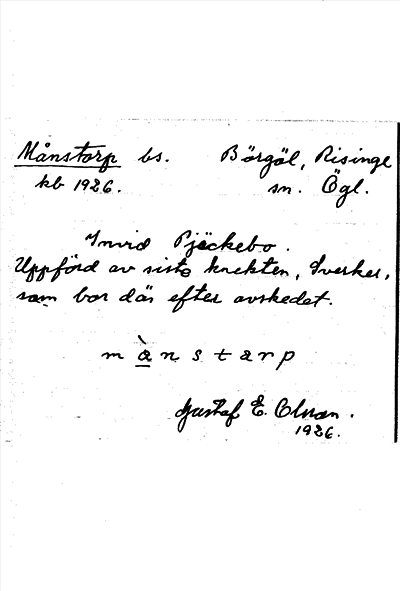 Månstorp bs. Börgöl, Risinge
kb 1926. sn. Ögl.
Invid Pjäckebo.
Uppförd av siste knekten, Sverker,
som bor där efter avskedet.
m à n s t a r p
Gustaf E.
1926.